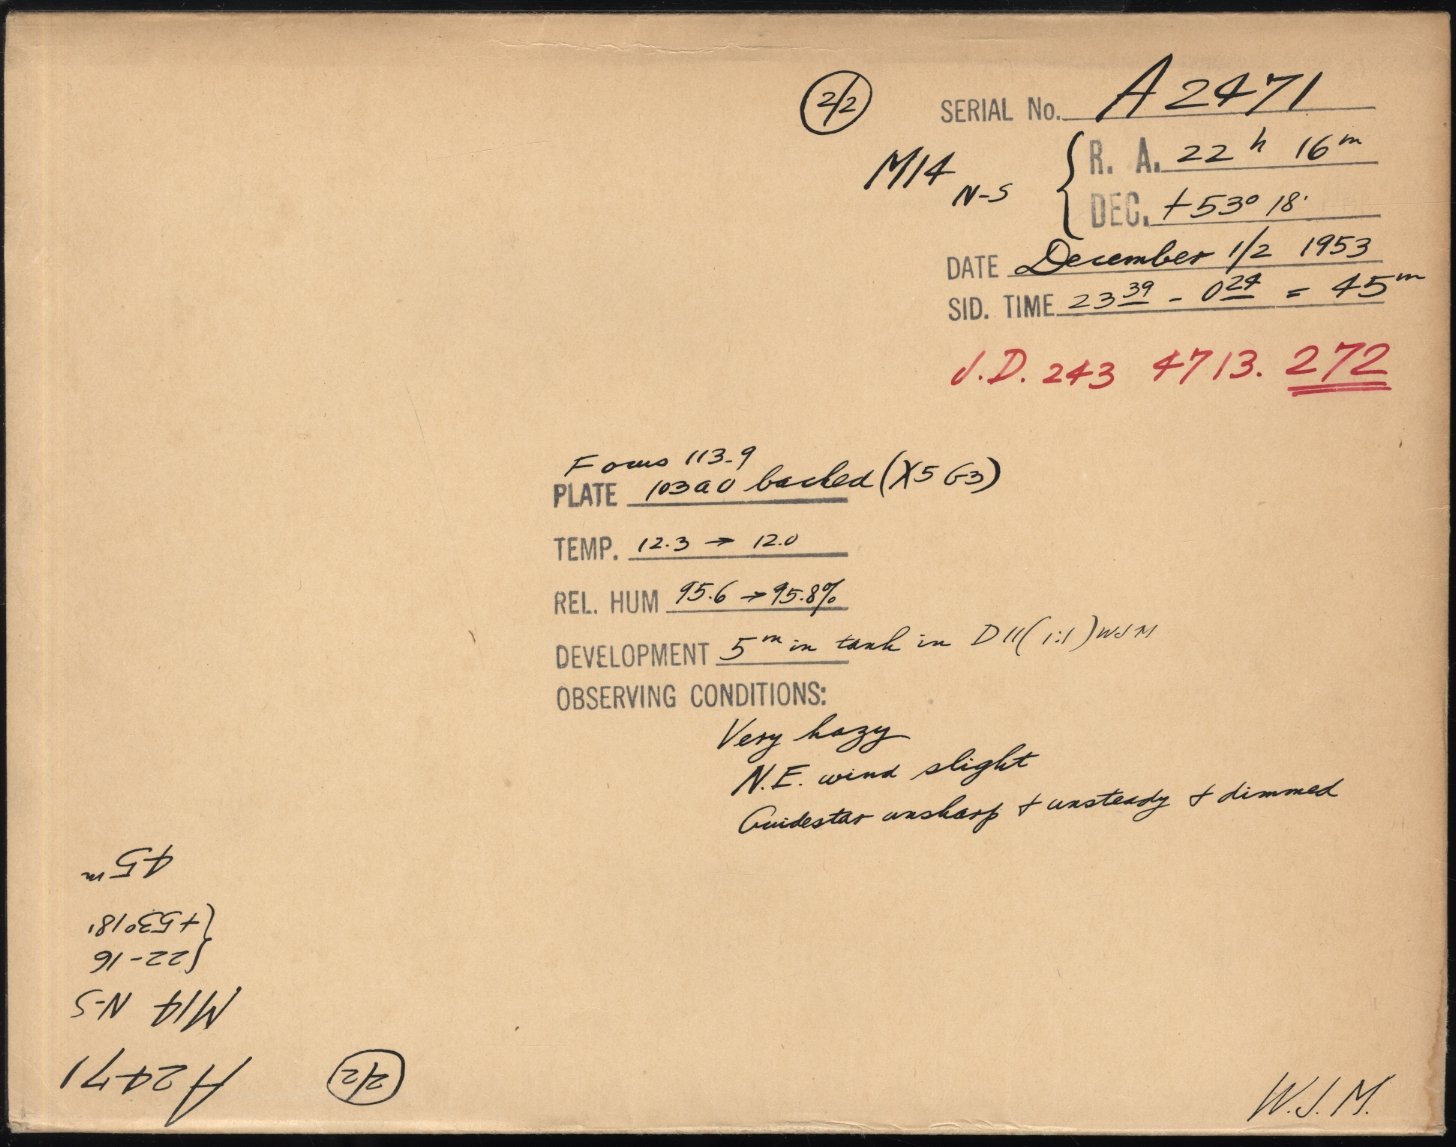 2/2
SERIAL No. A2471
M14 N-S { R. A. 22 h 16 m
DEC. +53° 18'
DATE December 1/2 1953
SID. TIME 23 39 - 0 24 = 45 m
J.D. 243 4713.272
Focus 113.9
PLATE 103a0 backed (X5 G3)
TEMP. 12.3 → 12.0
REL. HUM 95.6 → 95.8%
DEVELOPMENT 5 m in tank in D11 (1:1) WJM
OBSERVING CONDITIONS:
Very hazy
N.E. wind slight
Guidestar unsharp + unsteady + dimmed
W.J.M.
2/2
A2471
M14 N-S
{22-16
{+53°18'
45 m